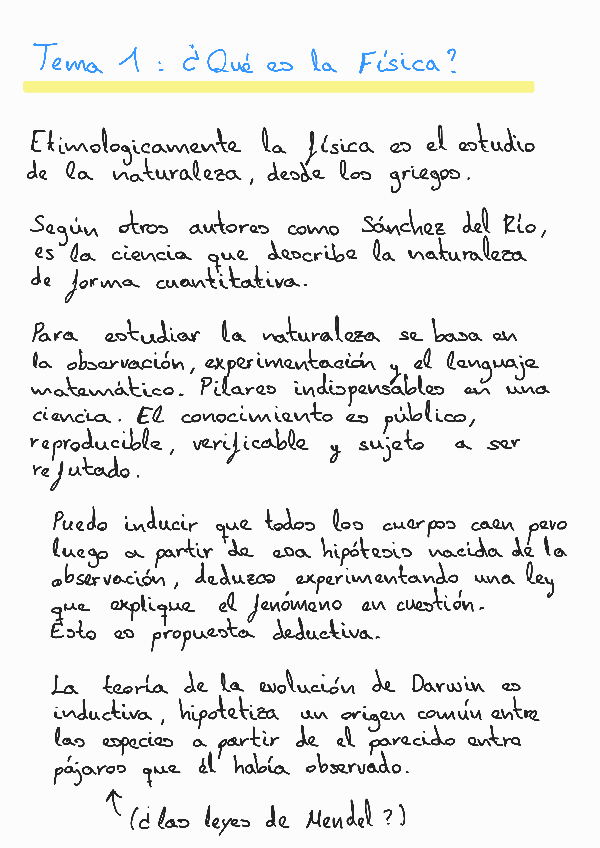 Tema 1: ¿Qué es la Física?
Etimologicamente la física es el estudio
de la naturaleza, desde los griegos.
Según otros autores como Sánchez del Río,
es la ciencia que describe la naturaleza
de forma cuantitativa.
Para estudiar la naturaleza se basa en
la observación, experimentación y el lenguaje
matemático. Pilares indispensables en una
ciencia. El conocimiento es público,
reproducible, verificable y sujeto a ser
refutado.
Puedo inducir que todos los cuerpos caen pero
luego a partir de esa hipótesis nacida de la
observación, deduzco experimentando una ley
que explique el fenómeno en cuestión.
Esto es propuesta deductiva.
La teoría de la evolución de Darwin es
inductiva, hipotetiza un origen común entre
las especies a partir de el parecido entre
pájaros que él había observado.
(¿las leyes de Mendel?)